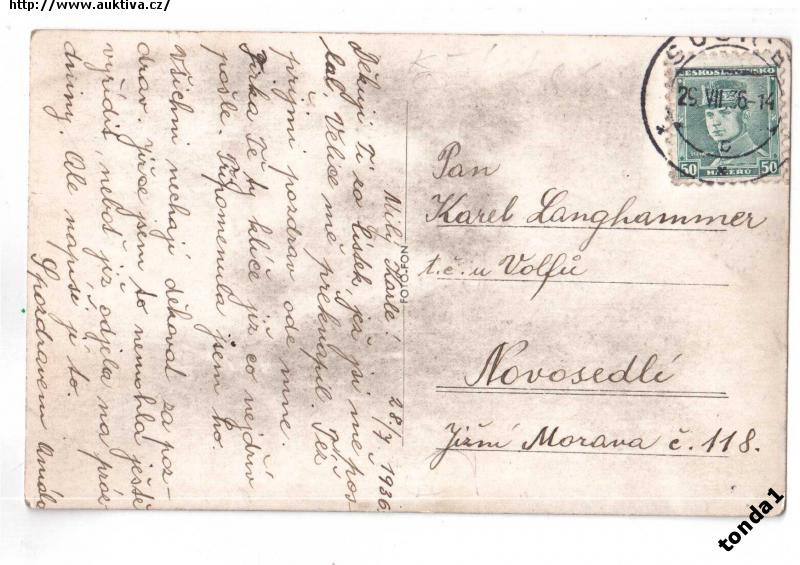 http://www.auktiva.cz/
Milý Karle! 28/7. 1936.
Děkuji Ti za lístek, jež jsi mě pos-
lal. Velice mě překvapil. Též
přijmi pozdrav ode mne.
Jirka Ti ty klíče již co nejdřív
pošle. Připomenula jsem ho.
Všichni nechají děkovat za poz-
drav. Jiřce jsem to nemohla ještě
vyřídit, neboť již odjela na práz
dniny. Ale napíši jí to.
S pozdravem
FOTO-FON
ČESKOSLOVENSKO
29. VII. 36-14
50 HALÉŘŮ 50
Pan
Karel Langhammer
t.č. u Volfů
Novosedlí
Jižní Morava č. 118.
tonda1